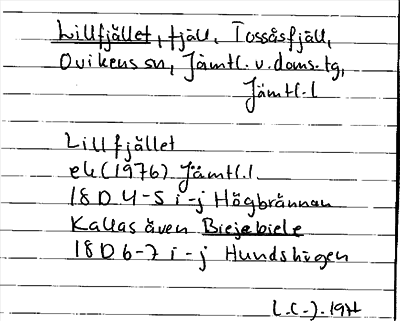 Lillfjället, fjäll, Tossåsfjäll,
Ovikens sn, Jämtl. v. doms. tg,
Jämtl. l
Lillfjället
ek (1976) Jämtl. l
18 D 4-5 i-j Högbrännan
Kallas även Biejebiele
18 D 6-7 i-j Hundshögen